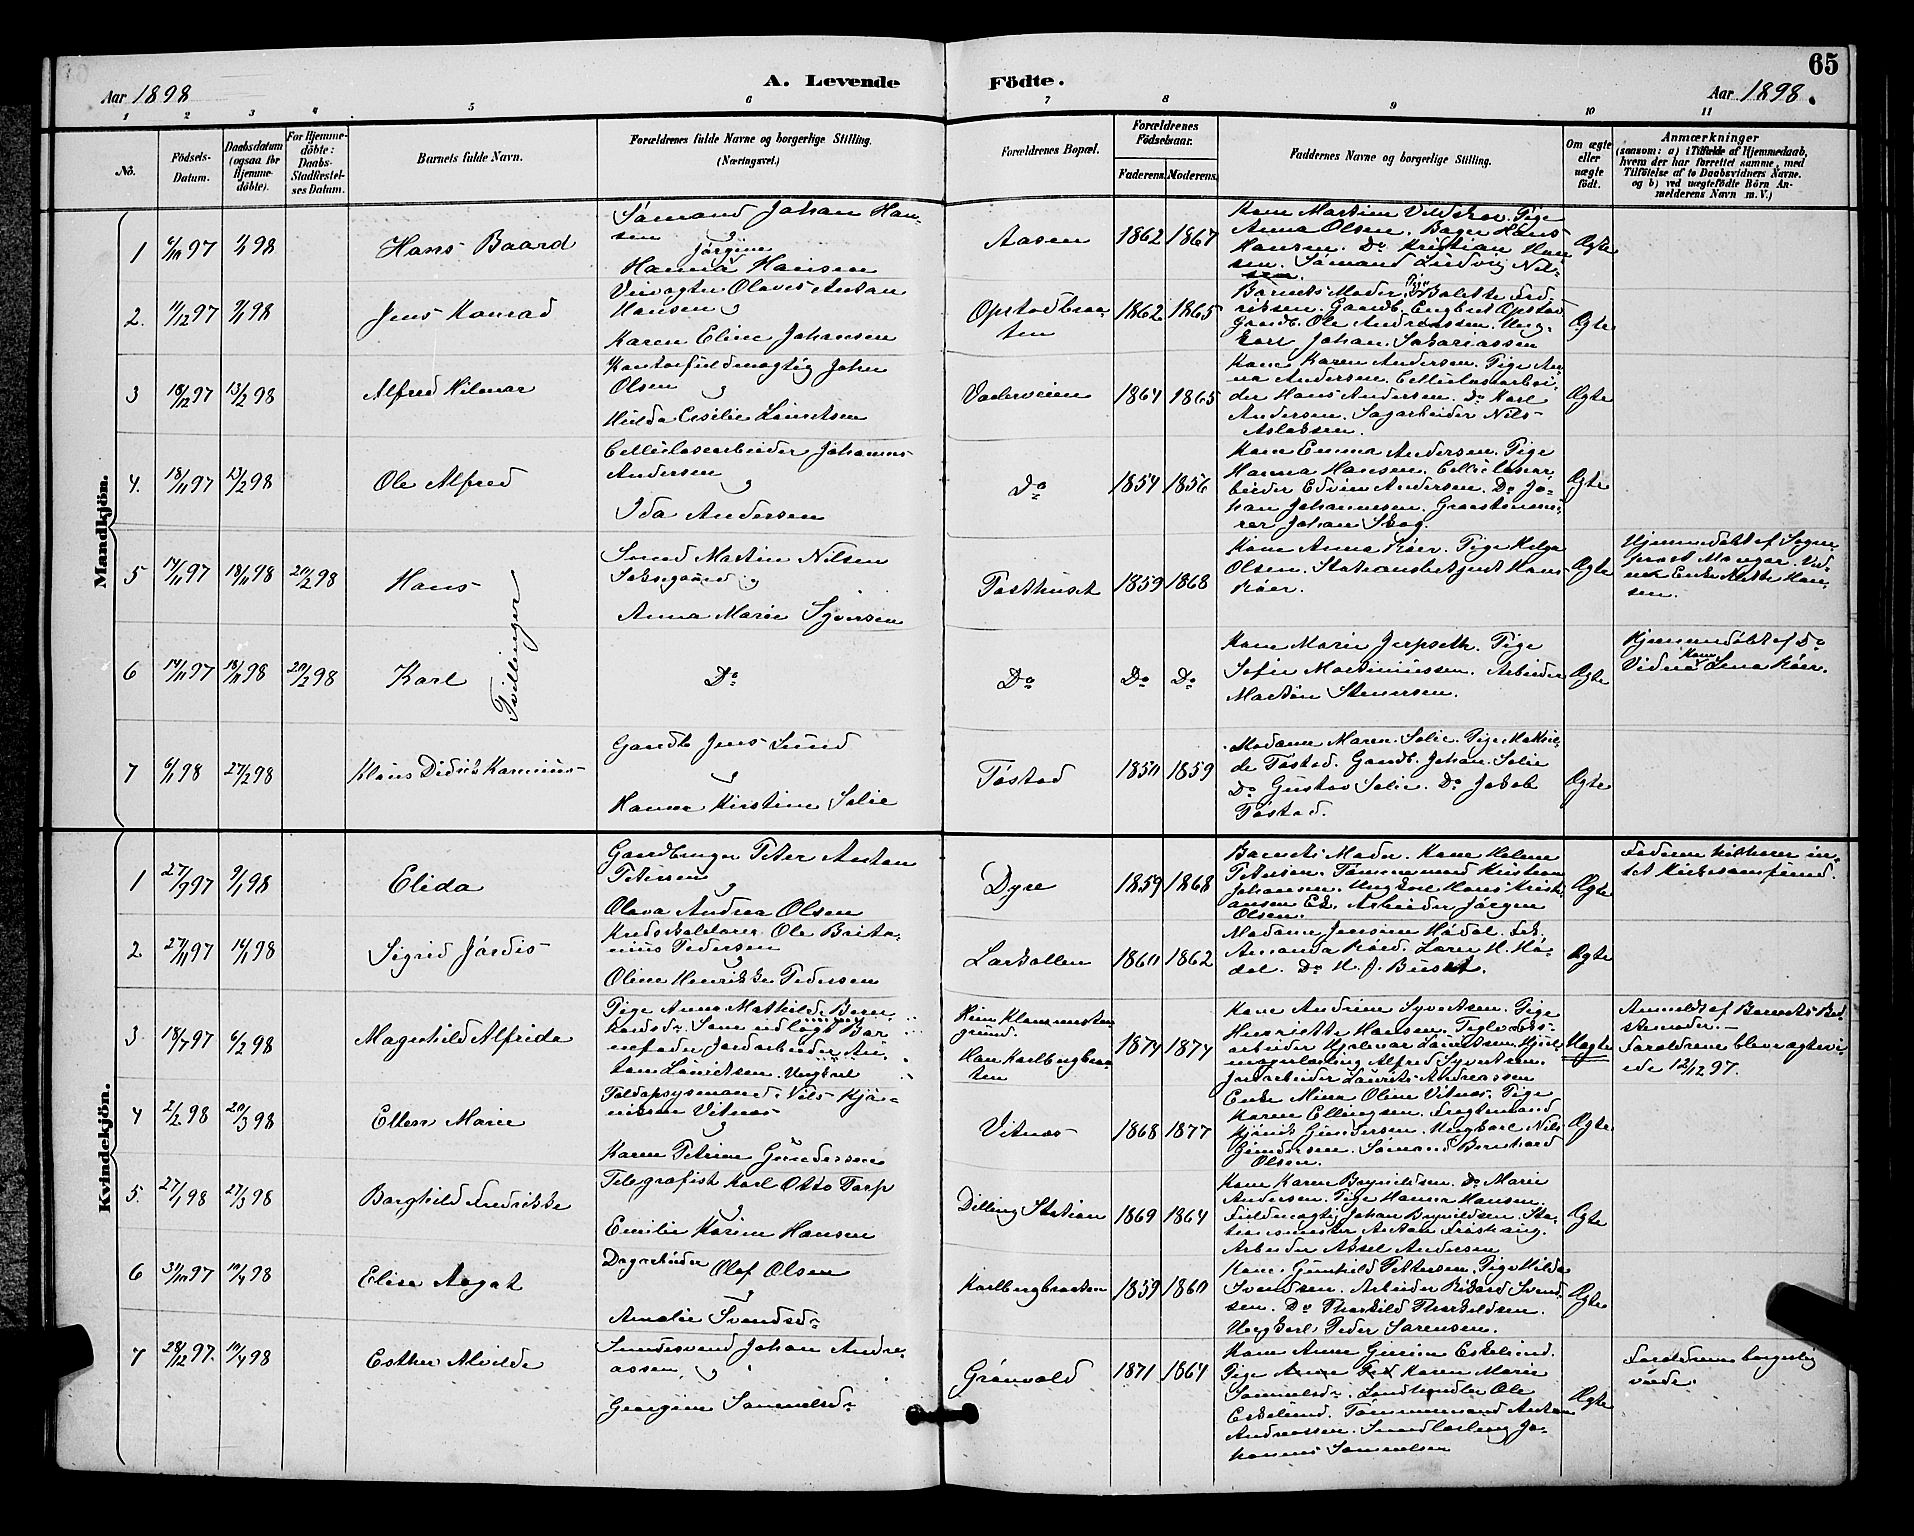 65
Aar 1898
A. Levende
Fødte.
Aar 1898.
1 2 3 4 5 6 7 8 9 10 11
No.
Födsels-
Datum.
Daabsdatum
(ogsaa for
Hjemme-
döbte).
For Hjemme-
döbte:
Daabs-
Stadfæstel-
ses Datum.
Barnets fulde Navn.
Forældrenes fulde Navne og borgerlige Stilling.
(Næringsvei.)
Forældrenes Bopæl.
Forældrenes
Födselsaar.
Faderens.
Moderens.
Faddernes Navne og borgerlige Stilling.
Om ægte
eller
uægte
födt.
Anmærkninger
(saasom: a) i Tilfælde af Hjemmedaab,
hvem der har forrettet samme, med
Tilföielse af to Daabsvidners Navne.
og b) ved uægtefödte Börn An-
melderens Navn m. V.)
Mandkjön.
1
6/11 97
1/1 98
Hans Baard
Sømand Johan Han-
sen
Jørgine
Hanna Hansen
Aasen
1862
1867
Kone Martine Vildskov. Pige
Anna Olsen. Bager Hans
Hansen. Do Kristian Han
sen. Sømand Ludvig Nil-
sen.
Ægte
2.
11/12 97
9/1 98
Jens Konrad
Veivogter Olaves Antan
Hansen
Karen Eline Johansen
Opstadbraa-
ten
1862
1865
Barnets Moder. Pige Balette Fred
riksen. Gaardb. Engbret Opstad
Gaardb. Ole Andreassen. Ung-
karl Johan Sakariassen
Ægte
3
18/12 97
13/2 98
Alfred Hilmar
Kontorfuldmægtig John
Olsen
Hulda Cecilie Lauritsen
Vaderveien
1864
1865
Kone Karen Andersen. Pige An-
na Andersen. Cellulosearbei-
der Hans Andersen. Do Karl
Andersen. Sagarbeider Nils
Aslaksen.
Ægte
4.
18/11 97
13/2 98
Ole Alfred
Cellulosearbeider Johannes
Andersen
Ida Andersen
Do
1854
1856
Kone Emma Andersen. Pige
Hanna Hansen. Cellulosear
beider Edvin Andersen. Do Jo-
han Johannesen. Graastensmu-
rer Johan Skog
Ægte
5
14/11 97
18/11 98
20/2 98
Hans
Tvillinger
Smed Martin Nilsen
Anna Marie Syversen
Posthuset
1859
1868
Kone Anna Röer. Pige Helga
Olsen. Stationsbetjent Hans
Röer.
Ægte
Hjemmedöbt af Sogne-
prest Manger. Vid-
ne Enke Nette Han-
sen.
6
14/11 97
18/11 98
20/2 98
Karl
Do
Do
Do
Do
Kone Marie Jerpseth. Pige
Sofie Martiniussen. Arbeider
Martin Stenersen.
Ægte
Hjemmedöbt af Do
Vidne Kone Lena Röer.
7
6/1 98
27/2 98
Klaus Didrik Rasmus
Gaardb Jens Lund
Hanna Kirstine Solie
Tøstad
1850
1859
Madame Maren Solie. Pige Mathil-
de Tøstad. Gaardb. Johan Solie
Do Gustav Solie. Do Jakob
Tøstad.
Ægte
Kvindekjön.
1
27/9 97
9/1 98
Elida
Gaardbruger Peter Anton
Petersen
Olava Andrea Olsen
Dyre
1859
1868
Barnets Moder. Kone Helene
Petersen. Tømmermand Kristian
Johansen. Ungkarl Hans Krist-
iansen Ek. Arbeider Jörgen
Olsen.
Ægte
Faderen tilhører in-
tet Kirkesamfund.
2
27/11 97
14/1 98
Sigrid Jördis
Ole Brita-
nius Pedersen
Oline Henrikke Pedersen
Larkollen
1860
1862
Madame Jensine Hödal. Frk.
Amanda Röed. Lærer H. Hö-
dal. Do H. J. Buset.
Ægte
3
18/7 97
6/2 98
Magnhild Alfride
Pige Anna Mathilde Bern-
hardsdr. Som udlagt Bar
nefader Jordarbeider An-
ton Lauritsen. Ungkarl
Hun Klommesten-
grund.
Han Karlbergbraa-
ten
1874
1874
Kone Andrine Syvertsen. Pige
Henriette Hansen. Teglverks-
arbeider Hjalmar Lauritsen. Hjul-
magerlærling Alfred Syvertsen.
Jordarbeider Laurits Andreassen
Uægte
Anmeldt af Barnets Bed-
stemoder.
Forældrene bleve ægtevi-
ede 12/12 97.
4
2/2 98
20/3 98
Ellen Marie
Toldopsynsmand Nils Kjö-
niksen Vitnæs
Karen Petrine Gundersen
Vitnæs
1868
1877
Enke Mina Oline Vitnæs. Pige
Karen Ellingsen. Fragtemand
Kjönik Gundersen. Ungkarl Nils
Gundersen. Sømand Bernhard
Olsen.
Ægte
5.
27/1 98
27/3 98
Borghild Fredrikke
Telegrafist Karl Otto Torp
Emilie Karine Hansen
Dilling Station
1869
1864
Kone Karen Brynildsen. Do Marie
Andersen. Pige Hanna Hansen
Fuldmægtig Johan Brynildsen. Sta-
tionsmester Anton Frishaug.
Arbeider Aksel Andersen
Ægte
6
31/10 97
10/4 98
Elise Aagot
Dagarbeider Olaf Olsen
Amalie Svendsdr
Karlbergbraaten
1859
1860
Kone Gunhild Pettersen. Pige Hilda
Svendsen. Arbeider Rikard Svend
sen. Do Thorkild Thorkildsen.
Ungkarl Peder Sørensen.
Ægte
7
28/12 97
10/4 98
Esther Alvilde
Smedesvend Johan Andre-
assen,
Georgine Samuelsdr
Grönvold
1871
1864
Kone Anne Gurine Eskelund.
Pige Karen Marie
Samuelsdr. Landhandler Ole
Eskelund. Tømmermand Anton
Andreassen. Smedlærling Jo-
hannes Samuelsen
Ægte
Forældrene borgerlig
viede.